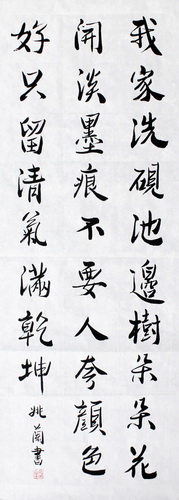 我家洗硯池邊樹朵朵花
開淡墨痕不要人夸顏色
好只留清氣滿乾坤
姚蘭書